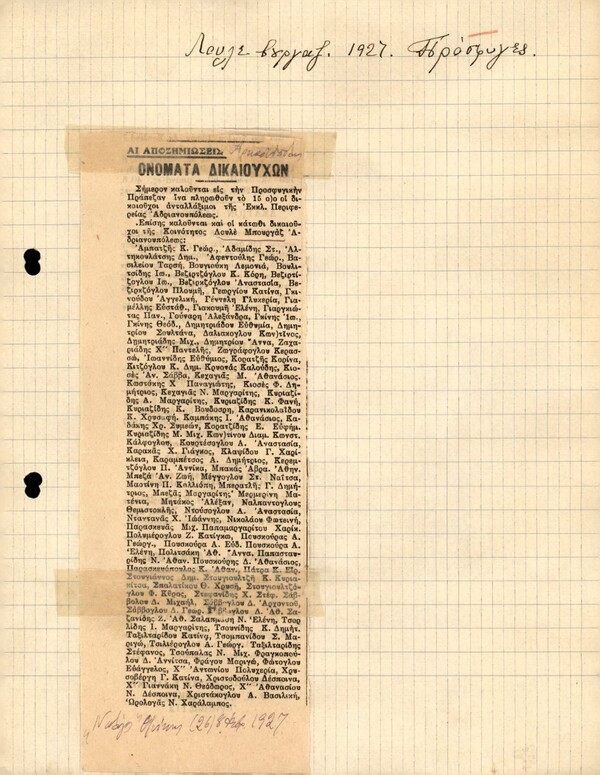 1927. Πρόσφυγες.
ΑΙ ΑΠΟΖΗΜΙΩΣΕΙΣ
ΟΝΟΜΑΤΑ ΔΙΚΑΙΟΥΧΩΝ
Σήμερον καλοῦνται εἰς τὴν Προσφυγικὴν
Τράπεζαν ἵνα πληρωθοῦν τὸ 15 ο)ο οἱ δι-
καιοῦχοι ἀνταλλάξιμοι τῆς Ἐκκλ. Περιφε-
ρείας Ἀδριανουπόλεως.
Ἐπίσης καλοῦνται καὶ οἱ κάτωθι δικαιοῦ-
χοι τῆς Κοινότητος Λουλὲ Μπουργὰζ Ἀ-
δριανουπόλεως:
Ἀμπατζῆς Κ. Γεώρ., Ἀδαμίδης Στ., Ἀλ-
τηκουλάτσης Δημ., Ἀφεντούλης Γεώρ., Βα-
σιλείου Ταρσή, Βουγιούκη Λεμονιά, Βουλι-
τσίδης Ἰω., Βεζιρτζόγλου Κ. Κόρη, Βεζιρτί-
ζογλου Ἰω., Βεζιρκζόγλου Ἀναστασία, Βε-
ζιρκζόγλου Πλουμῆ, Γεωργίου Κατίνα, Γκι-
νούδου Ἀγγελική, Γέννελη Γλυκερία, Για-
μέλλης Εὐστάθ., Γιακουμῆ Ἑλένη, Γιαργκιώ-
τας Παν., Γούναρη Ἀλεξάνδρα, Γκίνης Ἰω.,
Γκίνης Θεόδ., Δημητριάδου Εὐθυμία, Δημη-
τρίου Σουλτάνα, Δαλιακογλου Κων)τῖνος,
Δημητριάδης Μιχ., Δημητρίου Ἄννα, Ζαχα-
ριάδης Χ" Παντελῆς, Ζωγράφογλου Κερασ-
σώ, Ἰωαννίδης Εὐθύμιος, Κορατζῆς Κορίνα,
Κιτζόγλου Κ. Δημ. Κρυοπᾶς Καλούδης, Κιο-
σὲς Ἀν. Σάββα, Κεχαγιᾶς Μ. Ἀθανάσιος.
Κωστάκης Χ Παναγιάτης, Κιοσὲς Φ. Δη-
μήτριος, Κεχαγιᾶς Ν. Μαργαρίτης, Κυριαζί-
δης Α. Μαργαρίτης, Κυριαζίδης Κ. Φανή,
Κυριαζίδης Κ. Βουδοσρη, Καρανικολαΐδου
Κ. Χρυσαφή. Καμπάκης Ι. Ἀθανάσιος, Κα-
δάκης Χρ. Συμεών, Κορατζίδης Ε. Εὐφήμ.
Κυριαζίδης Μ. Μιχ. Κων)τίνου Διαμ. Κωνστ.
Κάλφογλου, Κουρτέσυγλου Α. Ἀναστασία,
Καρακᾶς Χ. Γιάγκος, Κλαψίδου Γ. Χαρί-
κλεια, Καραμπέτσος Α. Δημήτριος, Κερεμ-
τζόγλου Π. Ἀννίκα, Μπακάς Ἀβρα. Ἀθην.
Μπεζᾶ Ἀν. Ζωή, Μέγγογλου Στ. Ναΐτσα,
Μαστίνη Π. Καλλιόπη, Μπερατλῆς Γ. Δημή-
τριος, Μπεζᾶς Μαργαρίτης Μερμερίνη Μα-
τένια, Μητάκος Ἀλέξαν, Ναλπαντογλους
Θεμιστοκλῆς, Ντούσογλου Α. Ἀναστασία,
Νταντανᾶς Χ. Ἰωάννης, Νικολάου Φωτεινή,
Παρασκευᾶς Μιχ. Παπαμαργαρίτου Χαρίκ.
Πολυμέρογλου Ζ. Κατίγκω, Πουσκούρας Α.
Γεώργ., Πουσκούρα Α. Εὐδ. Πουσκούρα Α.
Ἑλένη, Πολιτσάκη Ἀθ. Ἄννα, Παπασταυ-
ρίδης Ν. Ἀθαν. Πουσκούρης Δ. Ἀθανάσιος,
Παρασκευόπουλος Κ. Ἀθαν., Πάτρα Κ. Εἰρ.
Στουγιάννος Δημ. Στουγιουλτζῆ Κ. Κυρια-
κίτσα, Σπαλατίκου Θ. Χρυσῆ, Στουγιουλτζό-
γλου Φ. Κῦρος, Στεφανίδης Χ. Στέφ. Σάβ-
βολου Δ. Μιχαήλ, Σάββογλου Δ. Ἀρχοντοῦ,
Σάββογλου Δ. Γεωρ. Σάββογλου Δ. Ἀθ. Σα-
ζανίδης Ζ. Ἀθ. Σαλαπασίδη Ν. Ἑλένη, Τσορ-
λίδης Ι. Μαργαρίτης, Τσουνίδης Κ. Δημήτ.
Ταξιλταρίδου Κατίνα, Τσομπανίδου Σ. Μα-
ριγώ, Τσιλιέρογλου Α. Γεωργ. Ταξιλταρίδης
Στέφανος, Τσούπαλας Ν. Μιχ. Φραγκοπού-
λου Δ. Ἀννίτσα, Φράγου Μαριγώ, Φώτογλου
Εὐάγγελος, Χ" Ἀντωνίου Πολυχερία, Χρυ-
σοβέργη Γ. Κατίνα, Χριστοδούλου Δέσποινα,
Χ" Γιαννάκη Ν. Θεόδωρος, Χ" Ἀθανασίου
Ν. Δέσποινα, Χριστάκογλου Α. Βασιλική,
Ὡρολογᾶς Ν. Χαράλαμπος.
1927